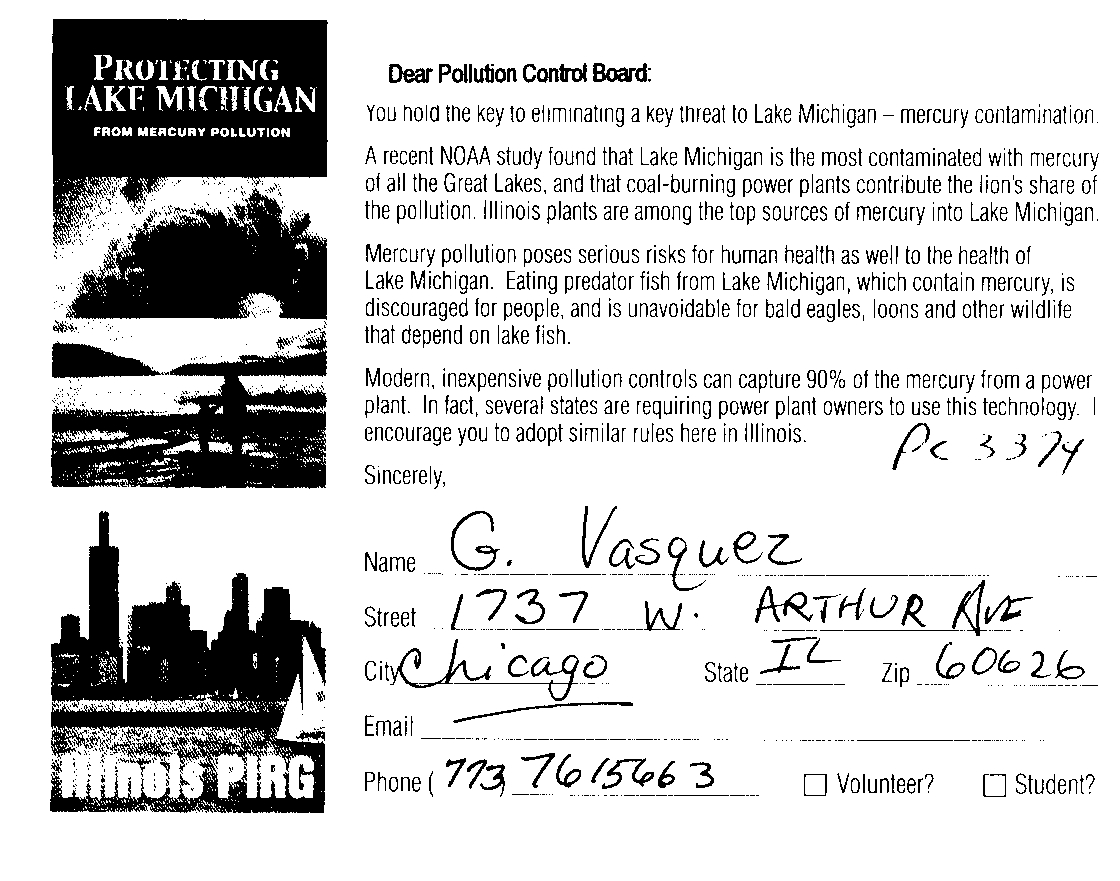 PROTECTING
LAKE MICHIGAN
FROM MERCURY POLLUTION
Illinois PIRG
Dear Pollution Control Board:
You hold the key to eliminating a key threat to Lake Michigan – mercury contamination.
A recent NOAA study found that Lake Michigan is the most contaminated with mercury
of all the Great Lakes, and that coal-burning power plants contribute the lion's share of
the pollution. Illinois plants are among the top sources of mercury into Lake Michigan.
Mercury pollution poses serious risks for human health as well to the health of
Lake Michigan. Eating predator fish from Lake Michigan, which contain mercury, is
discouraged for people, and is unavoidable for bald eagles, loons and other wildlife
that depend on lake fish.
Modern, inexpensive pollution controls can capture 90% of the mercury from a power
plant. In fact, several states are requiring power plant owners to use this technology. I
encourage you to adopt similar rules here in Illinois.
PC 3374
Sincerely,
Name G. Vasquez
Street 1737 W. ARTHUR AVE
City Chicago State IL Zip 60626
Email
Phone (773) 7615663 Volunteer? Student?